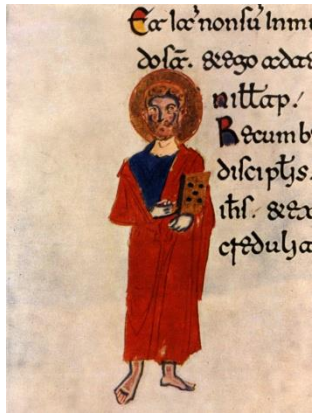 Ea lac' non su' Inmu
dosa. & ego a
nittap.
Recumb
discipts.
ihs. & ex
credulia